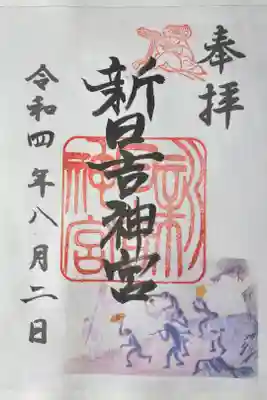 奉拝
新日吉神宮
令和四年八月二日